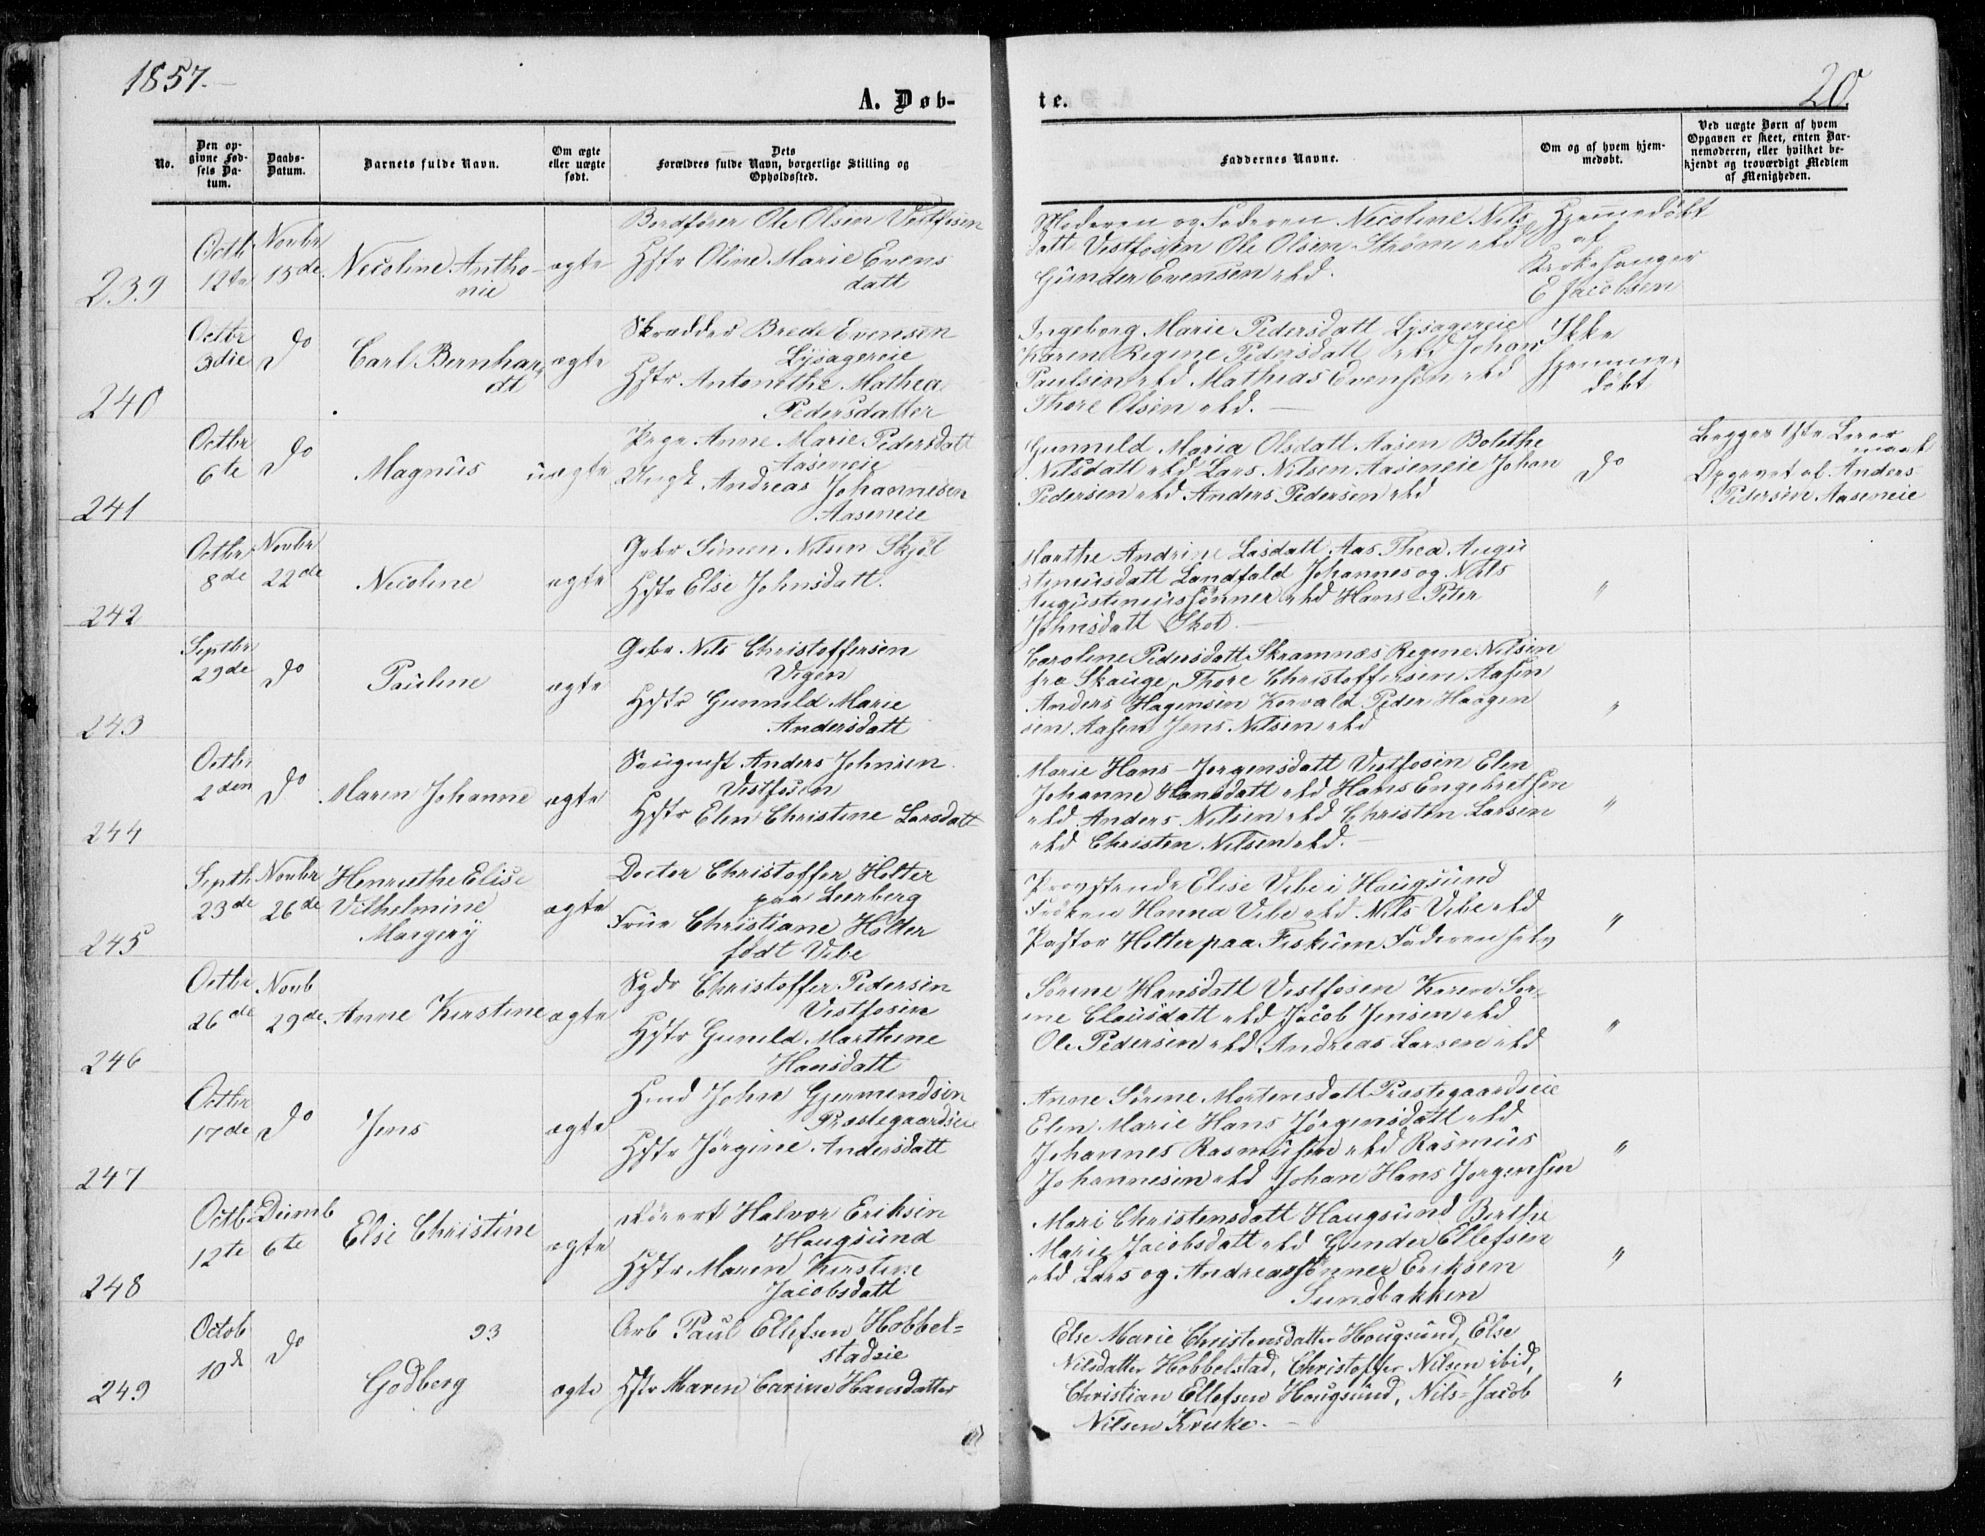 1857.
20.
A. Døb-
te.
No.
Den op-
givne Fød-
sels Da-
tum.
Daabs-
Datum.
Barnets fulde Navn.
Om ægte
eller uægte
født.
Dets
Forældres fulde Navn, borgerlige Stilling og
Opholdssted.
Faddernes Navne.
Om og af hvem hjem-
medøbt.
Ved uægte Børn af hvem
Opgaven er skeet, enten Bar-
nemoderen, eller hvilket be-
kjendt og troværdigt Medlem
af Menigheden.
239
Octb
12te
Novbr
15de
Nicoline Antho-
nie
ægte
Bordfører Ole Olsen Vestfosen
Hstr Oline Marie Evens
datt
Moderen og Faderen Nicoline Nils
datt Vestfosen Ole Olsen Strøm
Gunder Evensen
Hjemmedøbt
af
Kirkesanger
E Jacobsen
240
Octbr
3die
do
Carl Bernhar
dt
ægte
Skrædder Brede Evensen
Lysagereie
Hstr Antonethe Mathea
Pedersdatter
Ingeborg Marie Pedersdatt Lysagereie
Karen Regine Pedersdatt Johan
Paulsen Mathias Evensen
Thore Olsen
Ikke
hjemme-
døbt
241
Octbr
6te
do
Magnus
uægte
Pige Anne Marie Pedersdatt
Aaseneie
Ungk Andreas Johannesen
Aaseneie
Gunneld Maria Olsdatt Aasen Bolethe
Nilsdatt Lars Nilsen Aaseneie Johan
Pedersen Anders Pedersen
do
Begges 1ste Leier
maal
Opgivet af Anders
Pedersen Aaseneie
242
Octbr
8de
Novbr
22de
Nicoline
ægte
Gbr Simen Nilsen Skjøl
Hstr Else Johnsdatt.
Marthe Andrine Lasdatt Aas Thea Augu
stinusdatt Landfald Johannes og Nils
Augustinussønner Hans Peter
Johnsdatt Skot
"
243
Septbr
29de
do
Pauline
ægte
Gbr Nils Christoffersen
Vegen
Hstr Gunneld Marie
Andersdatt
Caroline Pedersdatt Skramnæs Regine Nilsen
fra Skauge, Thore Christoffersen Aasen
Anders Hagensen Korvald Peder Haagen
sen Aasen Jens Nilsen
"
244
Octbr
2den
do
Maren Johanne
ægte
Anders Johnsen
Vestfosen
Hstr Elen Christine Larsdatt
Marie Hans-Jørgensdatt Vestfosen Elen
Johanne Hansdatt Hans Engebretsen
Anders Nilsen Christen Larsen
Christen Nilsen
"
245
Septb
23de
Novbr
26de
Henriethe Elise
Vilhelmine
Margery
ægte
Doctor Christoffer Holter
paa Leerberg
Frue Christiane Holter
født Vibe
Provstinde Elise Vibe i Haugsund
Frøken Hanna Vibe Nils Vibe
Pastor Holter paa Fiskum Faderen selv
"
246
Octbr
26de
Novb
29de
Anne Kirstine
ægte
Christoffer Pedersen
Vestfosen
Hstr Guneld Marthine
Hansdatt
Sørine Hansdatt Vestfosen Karen Sør-
ine Clausdatt Jacob Jensen
Ole Pedersen Andreas Larsen
"
247
Octbr
17de
do
Jens
ægte
John Gjermundsen
Præstegaardseie
Hstr Jørgine Andersdatt
Anne Sørine Mortensdatt Præstegaardseie
Elen Marie Hans Jørgensdatt
Johannes Rasmusen Rasmus
Johannesen Johan Hans Jørgensen
"
248
Octb
12te
Decemb
6te
Else Christine
ægte
Halvor Eriksen
Haugsund
Hstr Maren Kirstine
Jacobsdatt
Mari Christensdatt Haugsund Berthe
Marie Jacobsdatt Gunder Ellefsen
Lars og Andreassønner Eriksen
Sundbakken
"
249
Octob
10d
do
93
Godberg
ægte
Arb Paul Ellefsen Hobbel=
stadeie
Hstr Maren Carine Hansdatter
Else Marie Christensdatter Hougsund, Else
Nilsdatter Hobbelstad, Christoffer Nilsen ibid,
Christian Ellefsen Hougsund, Nils-Jacob
Nilsen Kruke.
"